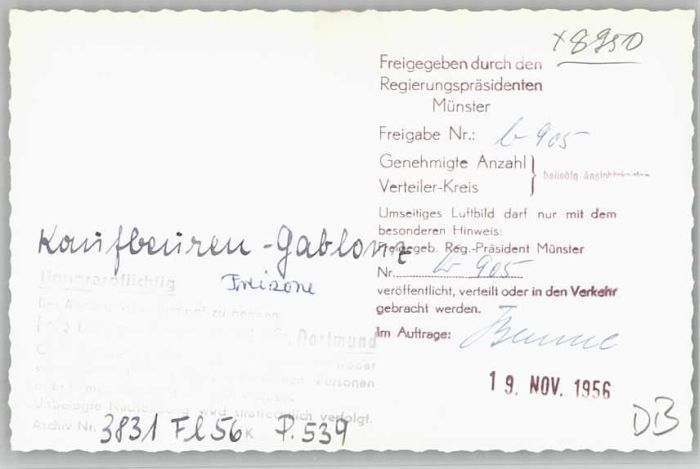 x 8950
Freigegeben durch den
Regierungspräsidenten
Münster
Freigabe Nr.: b 905
Genehmigte Anzahl
Verteiler-Kreis
beliebig Ansichtskarten
Umseitiges Luftbild darf nur mit dem
besonderen Hinweis:
Freigegeb. Reg.-Präsident Münster
Nr. b 905
veröffentlicht, verteilt oder in den Verkehr
gebracht werden.
Im Auftrage:
19. NOV. 1956
Kaufbeuren-Gablonz
Freizone
Honorarpflichtig
zu nennen
Dortmund
Personen
wird strafrechtlich verfolgt.
Archiv Nr. 3831 Fl 56 K P. 539
DB